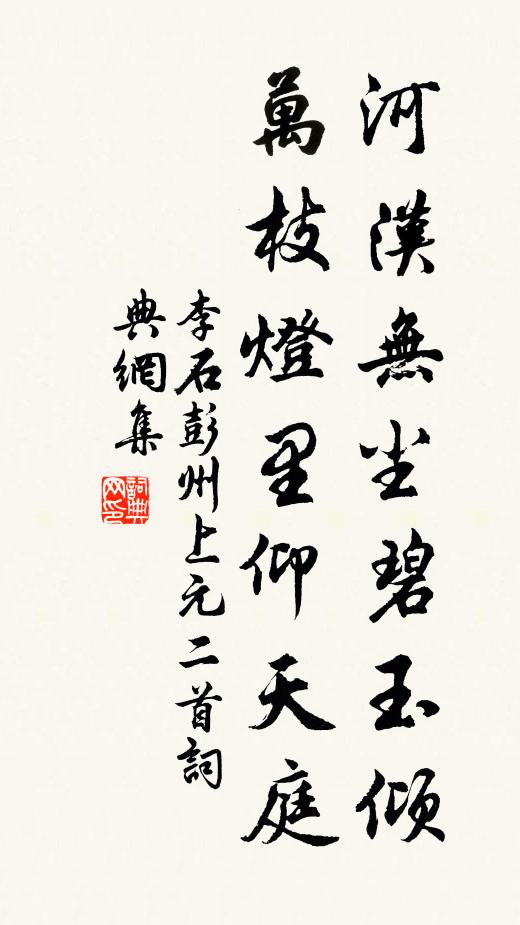 河漢無尘碧玉傾
萬枝燈里仰天庭
李石彭州上元二首詞
典網集
詞典网印